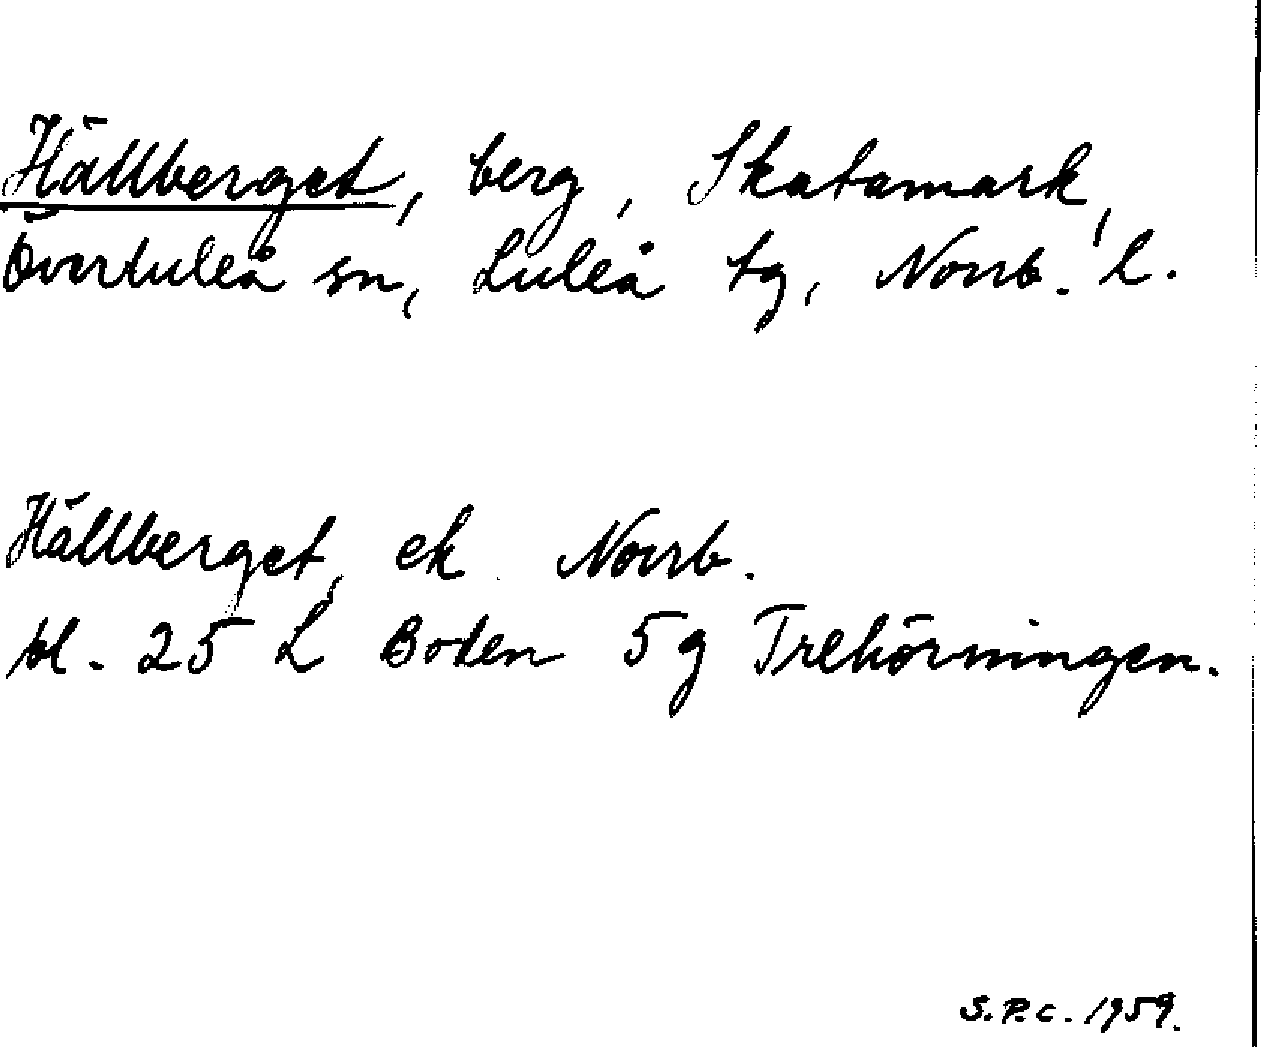 Hällberget, berg, Skatamark,
Överluleå sn, Luleå tg, Norrb. l.
Hällberget, ek Norrb.
bl. 25 L Boden 5g Trehörningen.
S.P.C. 1959.